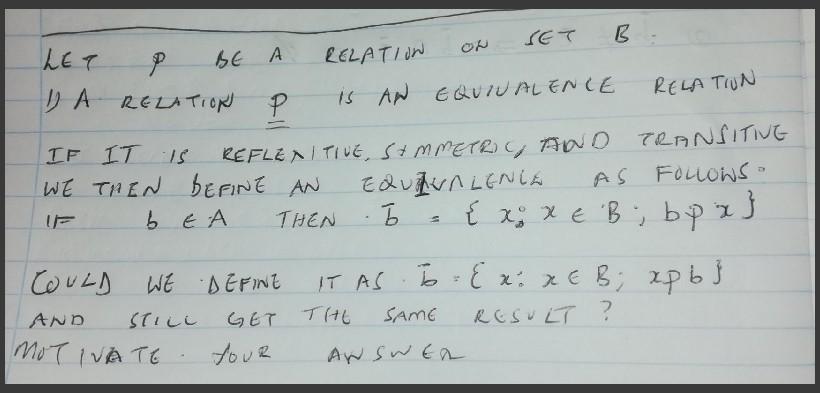 LET ρ BE A RELATION ON SET B.
1) A RELATION ρ IS AN EQUIVALENCE RELATION
IF IT IS REFLEXITIVE, SYMMETRIC, AND TRANSITIVE
WE THEN DEFINE AN EQUIVALENCE AS FOLLOWS.
IF b ∈ A THEN b̄ = { x: x ∈ B; bρx }
COULD WE DEFINE IT AS b̄ = { x: x ∈ B; xρb }
AND STILL GET THE SAME RESULT ?
MOTIVATE YOUR ANSWER